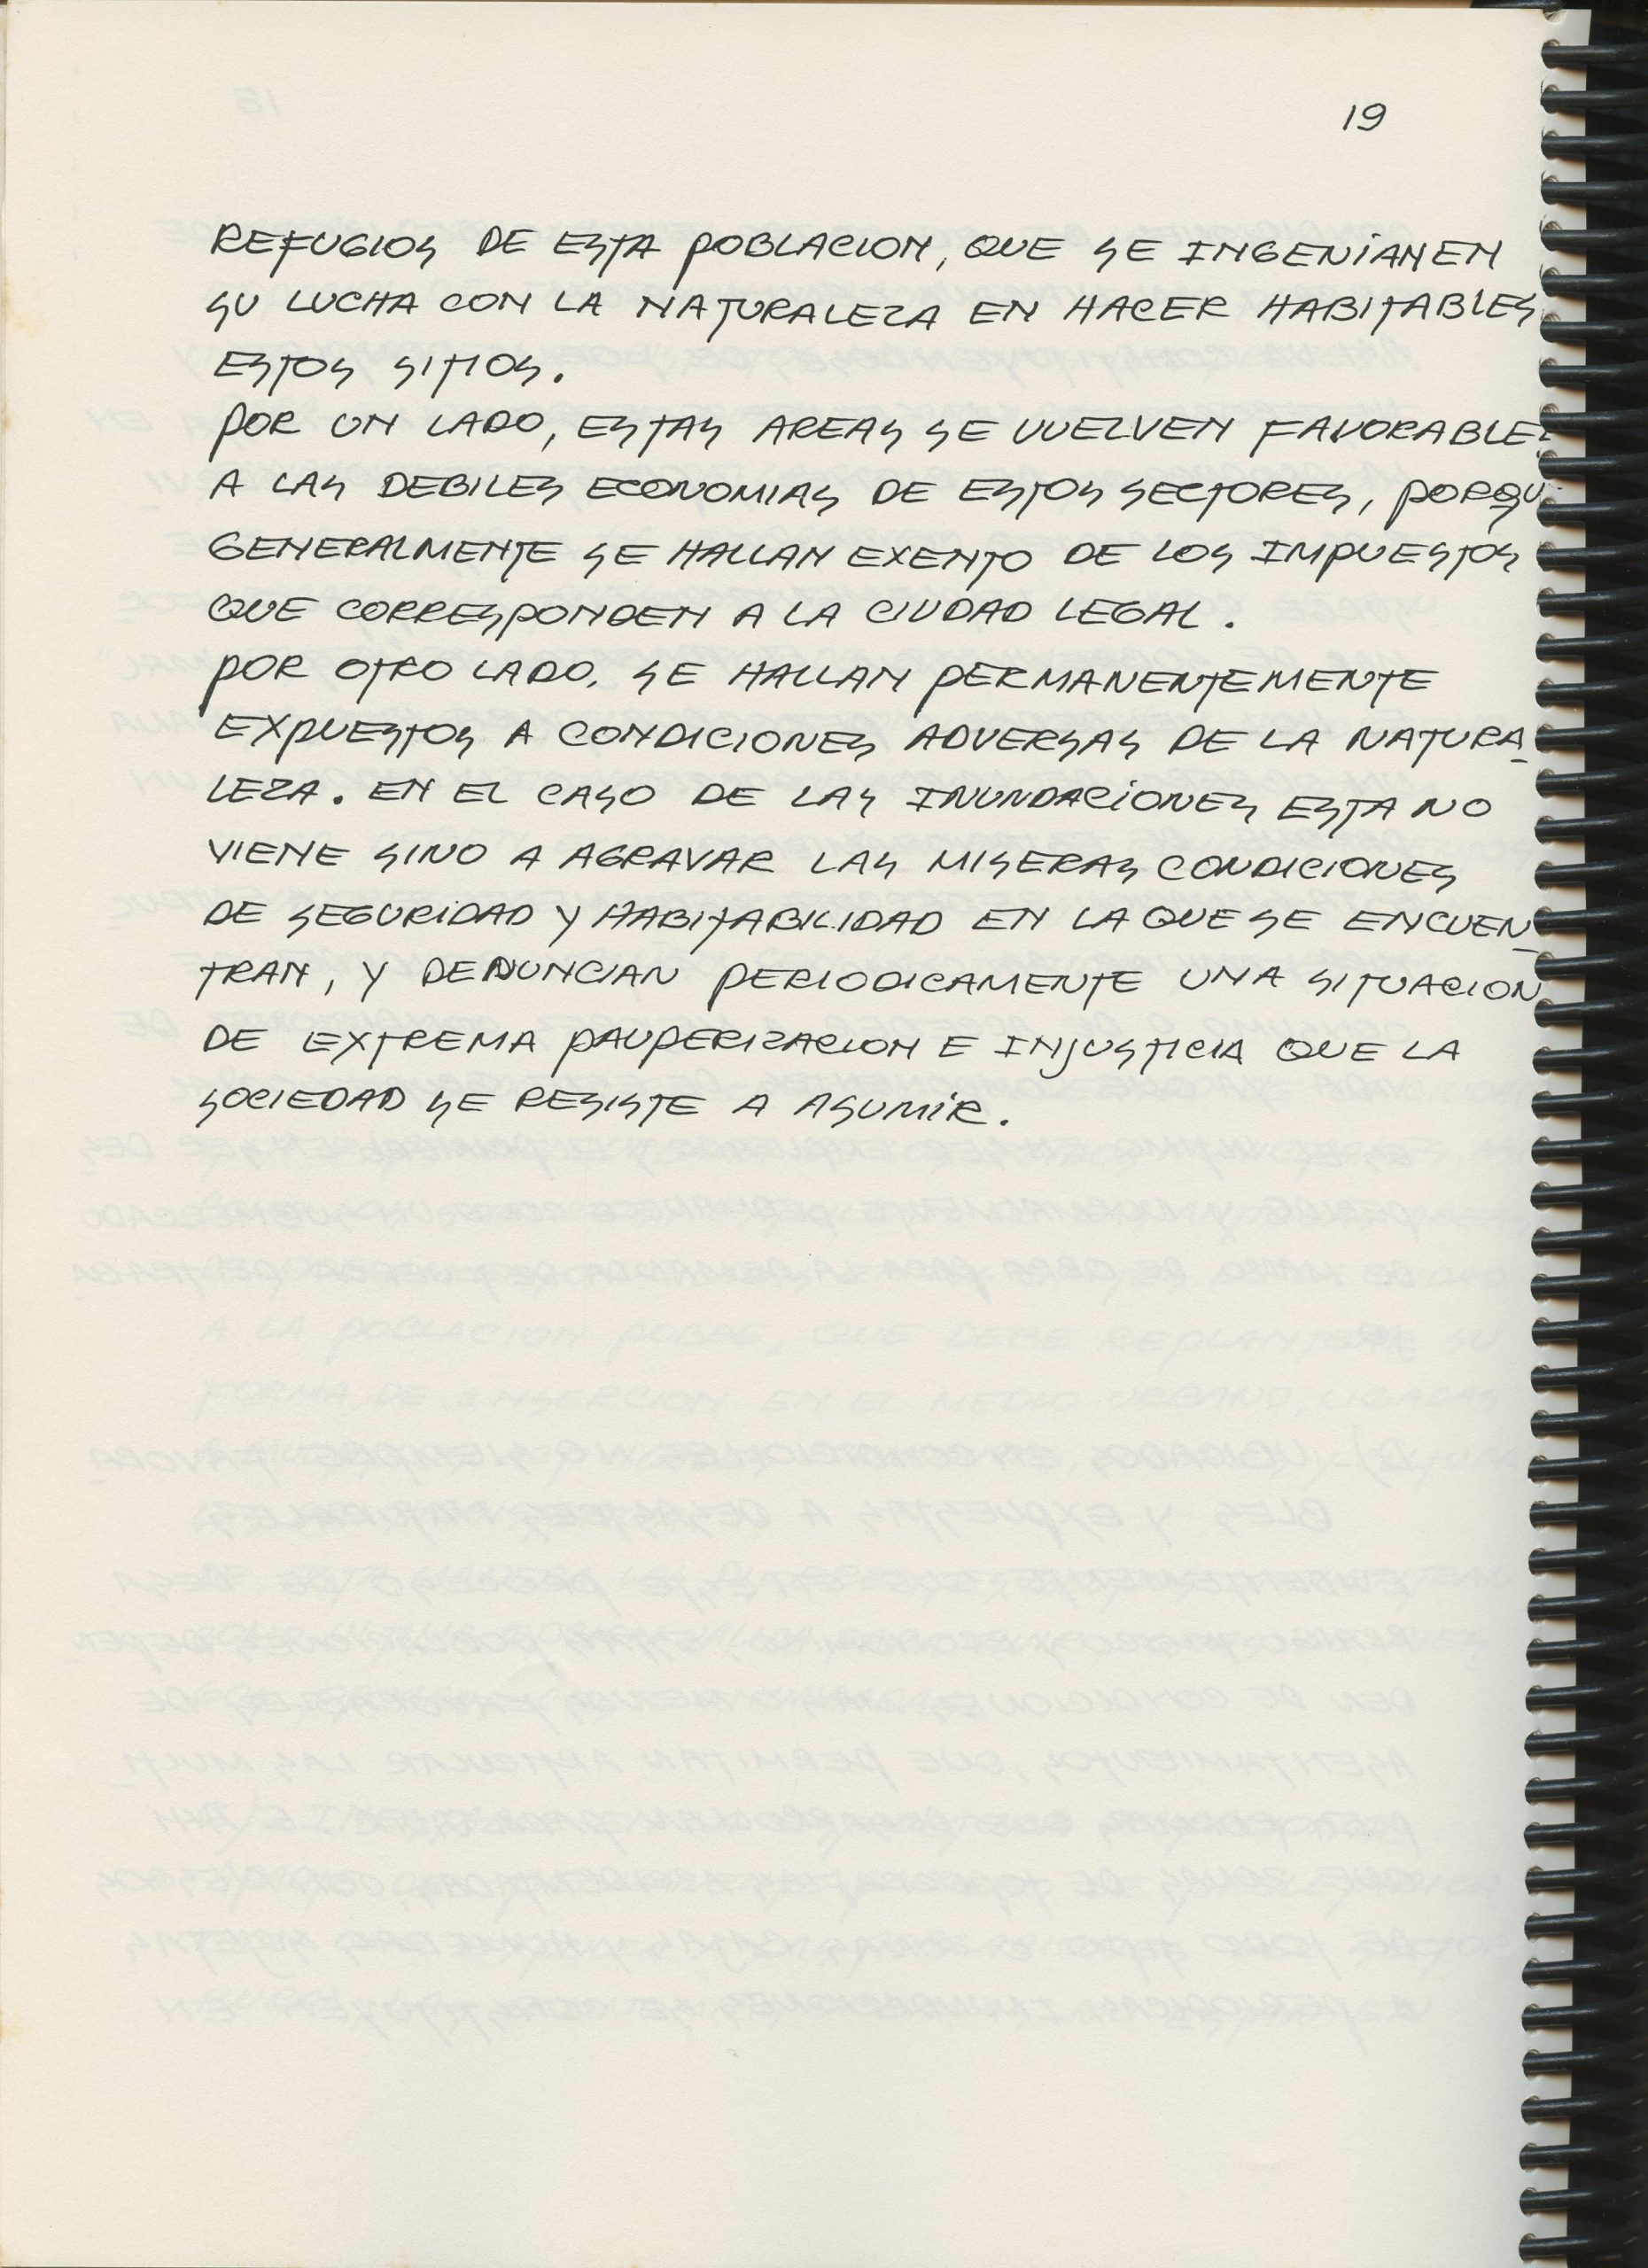 19
REFUGIOS DE ESTA POBLACION, QUE SE INGENIAN EN
SU LUCHA CON LA NATURALEZA EN HACER HABITABLES
ESTOS SITIOS.
POR UN LADO, ESTAS AREAS SE VUELVEN FAVORABLES
A LAS DEBILES ECONOMIAS DE ESTOS SECTORES, PORQU
GENERALMENTE SE HALLAN EXENTO DE LOS IMPUESTOS
QUE CORRESPONDEN A LA CIUDAD LEGAL.
POR OTRO LADO, SE HALLAN PERMANENTEMENTE
EXPUESTOS A CONDICIONES ADVERSAS DE LA NATURA-
LEZA. EN EL CASO DE LAS INUNDACIONES ESTA NO
VIENE SINO A AGRAVAR LAS MISERAS CONDICIONES
DE SEGURIDAD Y HABITABILIDAD EN LA QUE SE ENCUEN-
TRAN, Y DENUNCIAN PERIODICAMENTE UNA SITUACION
DE EXTREMA PAUPERIZACION E INJUSTICIA QUE LA
SOCIEDAD SE RESISTE A ASUMIR.